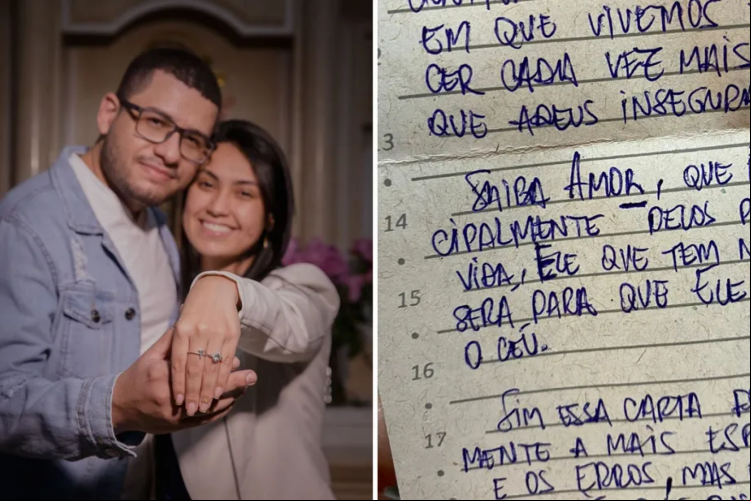 EM QUE VIVEMOS
CER CADA VEZ MAIS
QUE INSEGURA
13
SAIBA AMOR, QUE
14
CIPALMENTE PELOS P
VIDA, ELE QUE TEM N
15
SERÁ PARA QUE ELE
O CÉU.
16
SIM ESSA CARTA E
17
MENTE A MAIS ESP
E OS ERROS, MAS